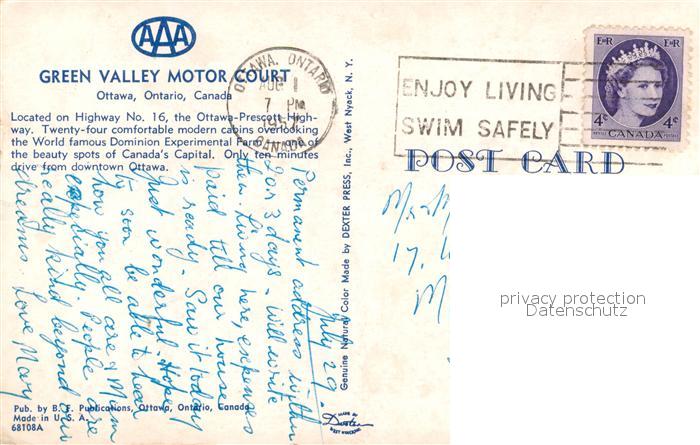 AAA
GREEN VALLEY MOTOR COURT
Ottawa, Ontario, Canada
Located on Highway No. 16, the Ottawa-Prescott High-
way. Twenty-four comfortable modern cabins overlooking
the World famous Dominion Experimental Farm — one of
the beauty spots of Canada's Capital. Only ten minutes
drive from downtown Ottawa.
OTTAWA, ONTARIO
AUG 1
7 PM
CANADA
ENJOY LIVING
SWIM SAFELY
EIIR EIIR
4¢ 4¢
POSTES POSTAGE
CANADA
POST CARD
July 29.
Permanent address within
2 or 3 days - will write
then. Living here, expenses
paid till our house
is ready - Saw it today
Just wonderful. Hope
to soon be able to hear
how you all are & Mam
especially. People are
really kind beyond our
dreams. Love Mary
Genuine Natural Color Made by DEXTER PRESS, Inc., West Nyack, N. Y.
17.
M
privacy protection
Datenschutz
Pub. by B. F. Publications, Ottawa, Ontario, Canada
Made in U. S. A.
68108A
MADE BY
Dexter
WEST NYACK, NY